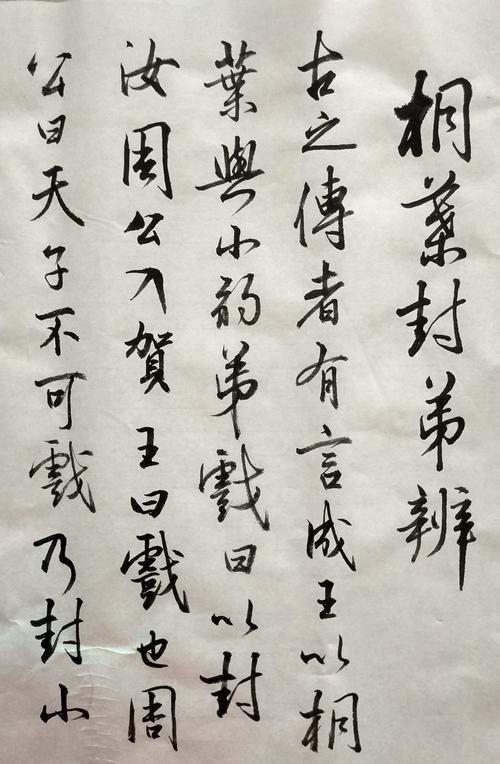 桐葉封弟辨
古之傳者有言成王以桐
葉與小弱弟戲曰以封
汝周公入賀王曰戲也周
公曰天子不可戲乃封小